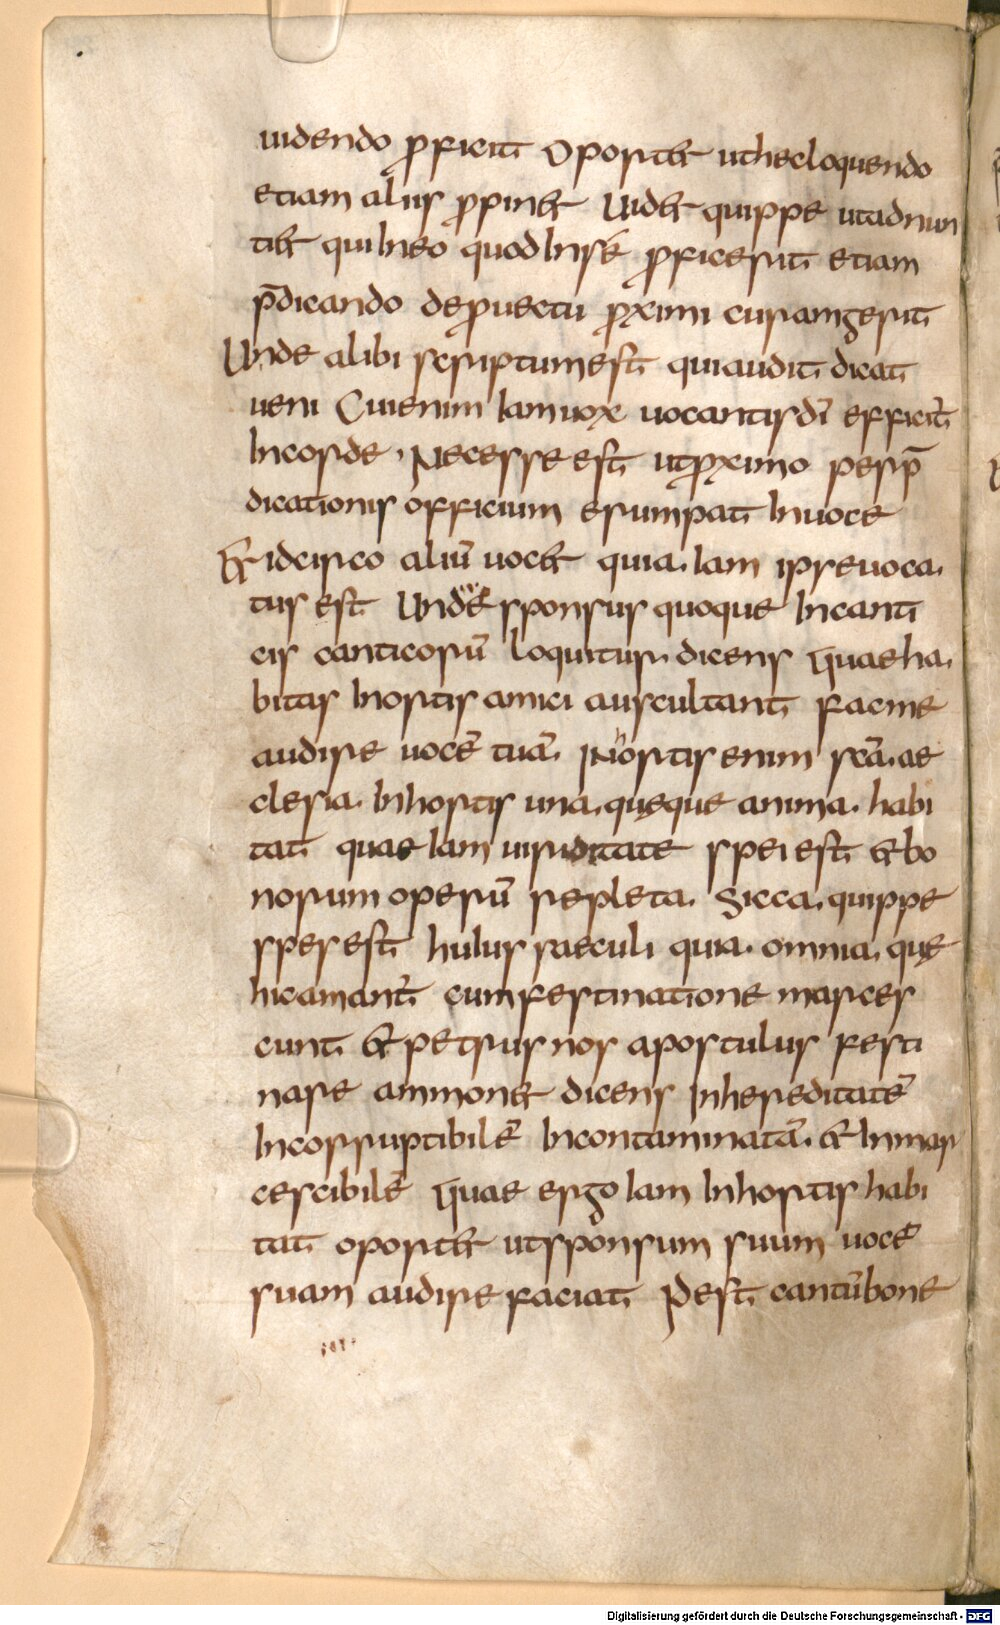 uidendo ꝓficit Oportet uthecloquendo
etiam aliis ꝓpinet Uidet quippe utadnun
tiet quiineo quodinsé ꝓficerit etiam
p̄dicando deꝓuectu ꝓximi curamgerit
Unde alibi scriptumest quiaudit dicat
ueni Cuienim iamuox uocantisdī efficit̄
incorde, Necesseest utꝓximo perp̄
dicationis officium erumpat inuoce
Et idcirco aliū uocet quia iam ipseuoca
tus est Unde sponsus quoque incanti
cis canticorū loquitur dicens Quaeha
bitas inortis amici auscultant facme
audire uocē tuā. Inhortis enim scā ae
clesia. Inhortis una queque anima habi
tat quae iam uiriditate spei est et bo
norum operū repleta. Sicca quippe
spes est huius saeculi quia omnia que
hicamant̄ cumfestinatione marces
cunt et petrus nos apostulus festi
nare ammonet dicens Inhereditatē
incorruptibilē incontaminatā et inmar
cescibilē Quae ergo iam inhortis habi
tat oportet utsponsum suum uocē
suam audire faciat Idest cantūbone
Digitalisierung gefördert durch die Deutsche Forschungsgemeinschaft - DFG